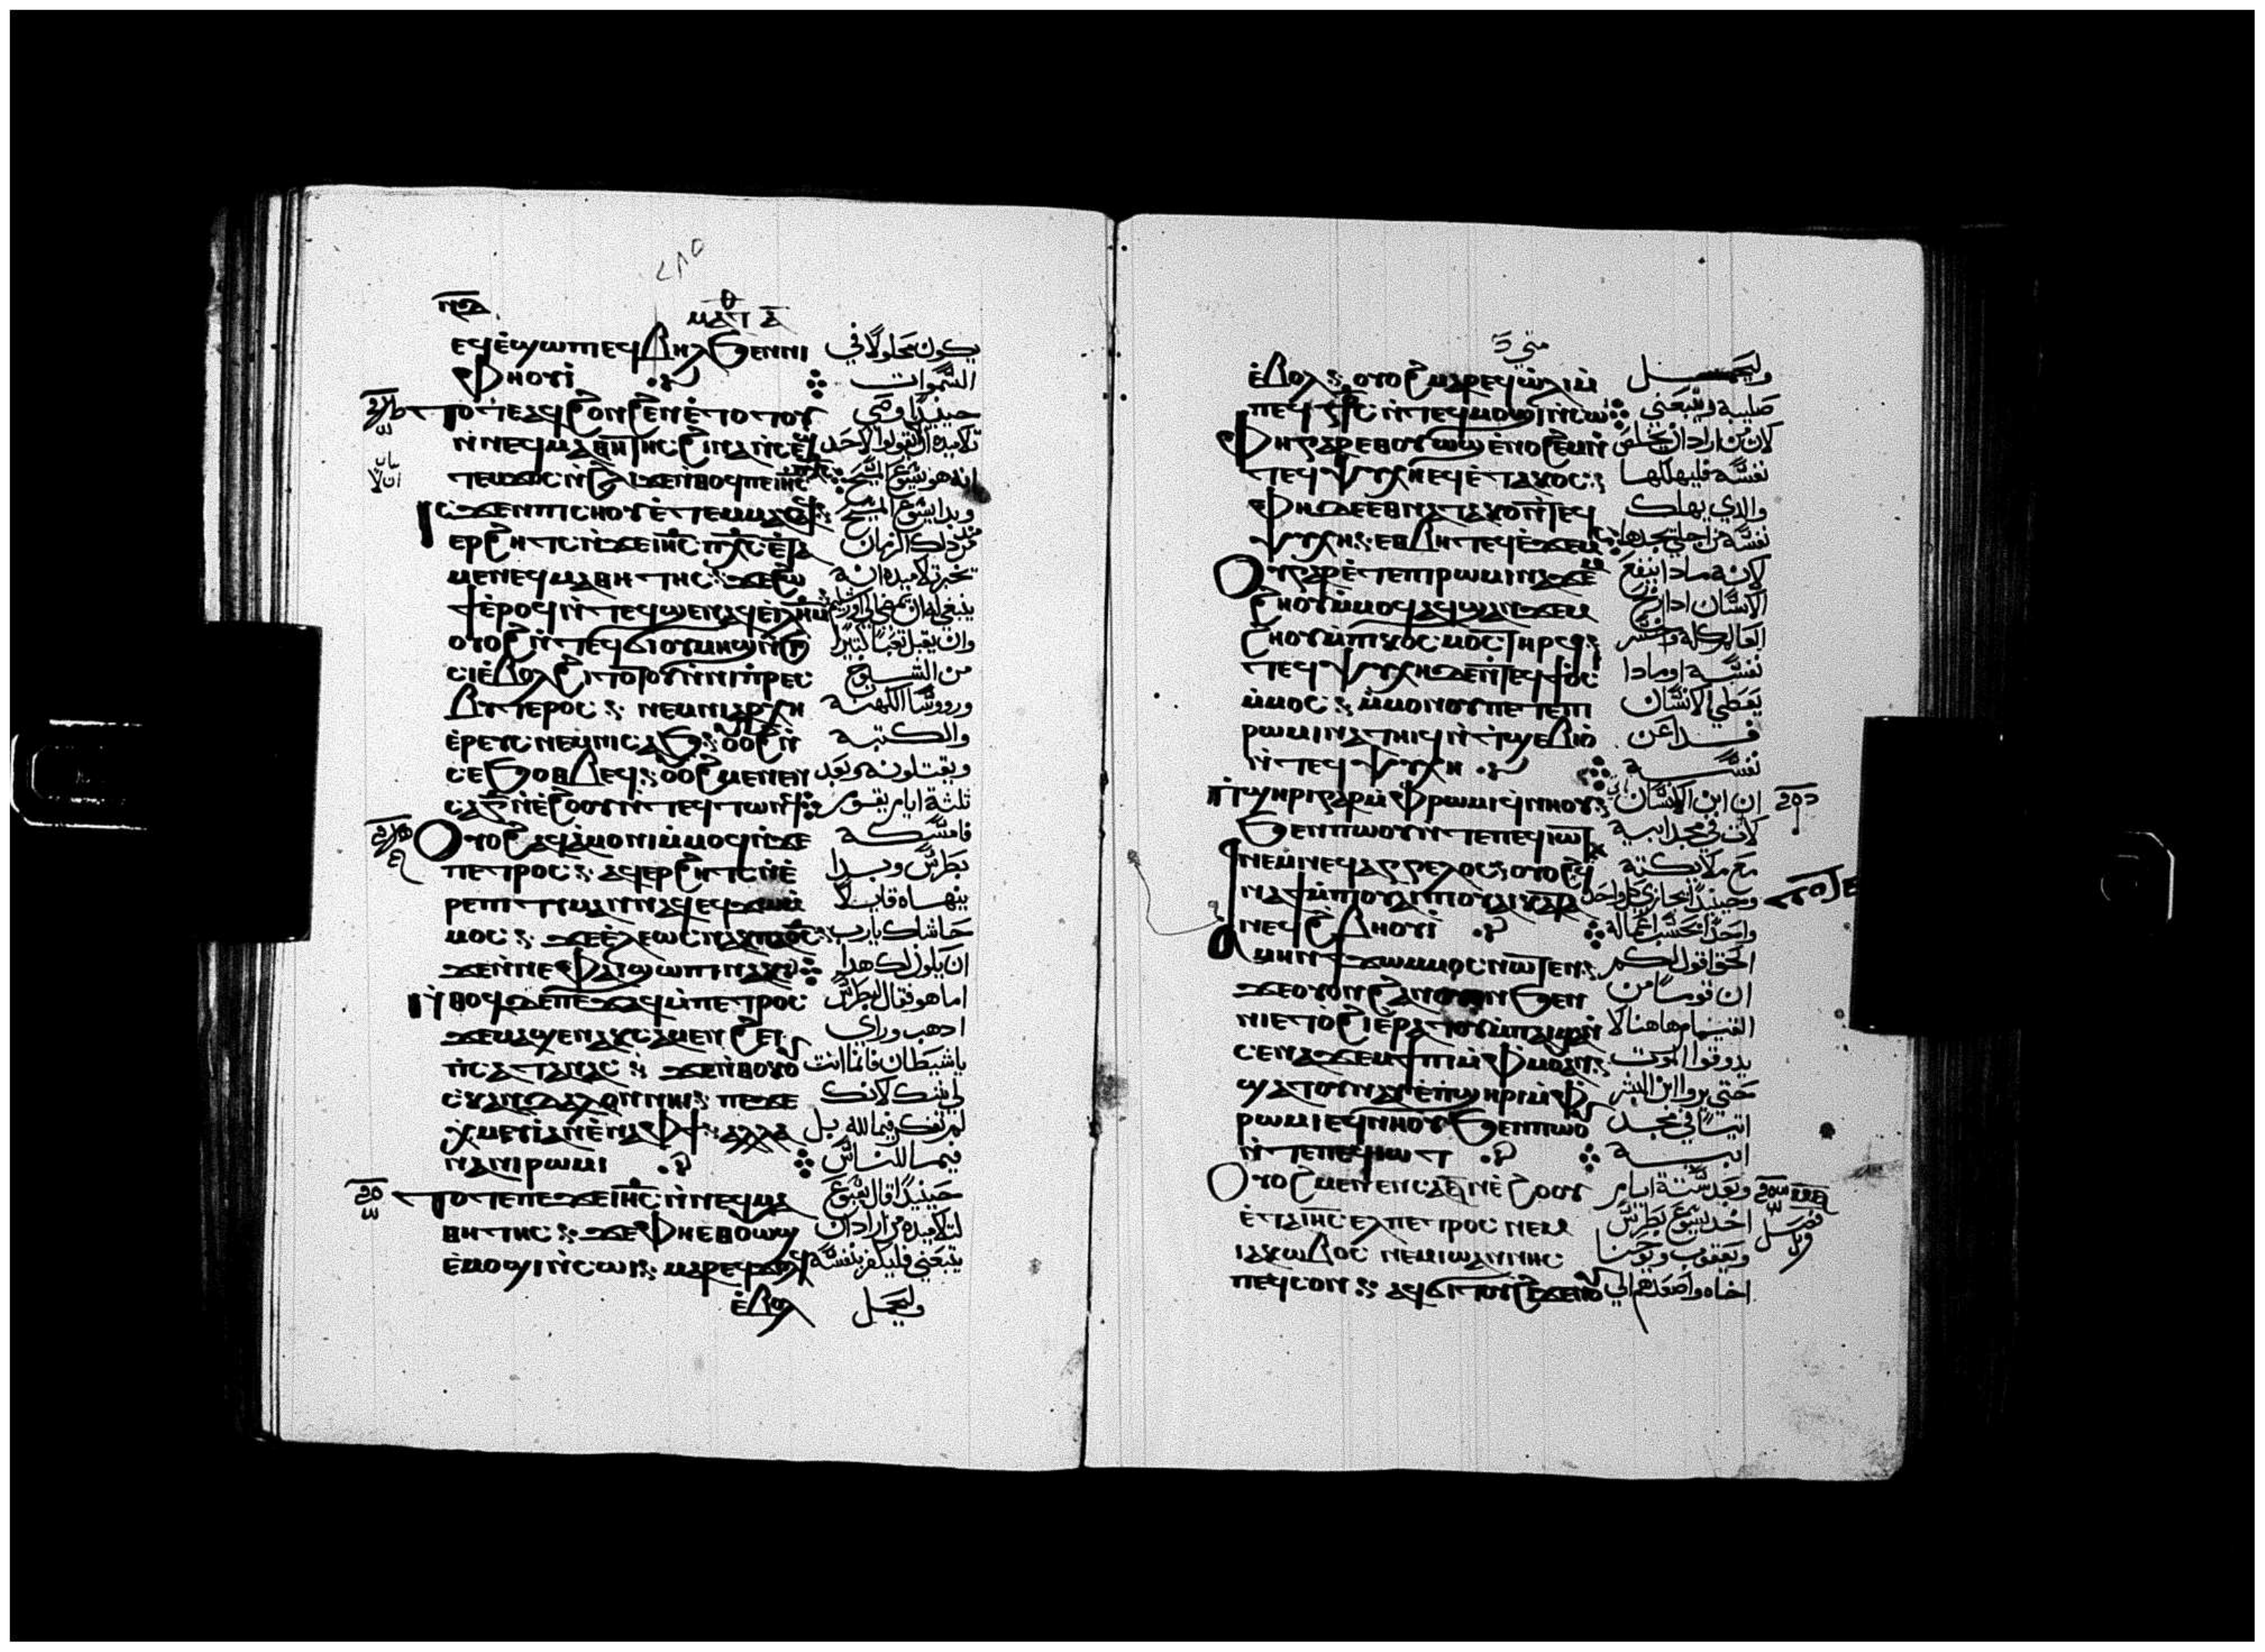 ⲙⲁⲧ ⲁ
ⲉϥⲉ̀ϣⲱⲡⲉϥⲃⲏⲗϧⲉⲛⲛⲓ يكون محلولًا في
ⲫⲏⲟⲩⲓ̀ السموات
ⲧⲟⲧⲉⲁϥϩⲟⲛϩⲉⲛⲉ̀ⲧⲟⲧⲟⲩ حينيدًا وصي
ⲛ̀ⲛⲉϥⲙⲁⲑⲏⲧⲏⲥϩⲓⲛⲁⲛ̀ⲥⲉ تلاميده ان لايقولوا لاحد
انه هو يسوع المسيح
ⲓⲥϫⲉⲛⲡⲓⲥⲏⲟⲩⲉ̀ⲧⲉⲙⲙⲁⲩ وبدا يسوع المسيح
ⲉⲣϩⲏⲧⲥⲛ̀ϫⲉⲓⲏⲥⲡⲭⲥⲉ̀ⲧⲁ من دلك الزمان
ⲙⲉⲛⲉϥⲙⲁⲑⲏⲧⲏⲥ: ϫⲉϩⲱ يخبر تلاميده انه
ϯⲉ̀ⲣⲟϥⲛ̀ⲧⲉϥϣⲉⲛⲁϥⲉ̀ⲓⲗⲏⲙ ينبغي له ان يمضي الي اورشليم
ⲟⲩⲟϩⲛ̀ⲧⲉϥϭⲓⲟⲩⲙⲏϣⲛ̀ϧⲓ وان يقبل تعبًا كتيرًا
ⲥⲓⲉ̀ⲃⲟⲗϩⲓⲧⲟⲧⲟⲩⲛ̀ⲛⲓⲡⲣⲉⲥ من الشيوخ
ⲃⲩⲧⲉⲣⲟⲥ: ⲛⲉⲙⲛⲓⲁⲣⲭⲏ ورووسا الكهنه
ⲉ̀ⲣⲉⲩⲥⲛⲉⲙⲛⲓⲥⲁϧ: ⲟⲟϩⲛ̀ والكتبه
ⲥⲉϧⲟⲑⲃⲉϥ: ⲟⲟϩⲙⲉⲛⲉⲛ ويقتلونه وبعد
ⲥⲁⲅ̅ⲛ̀ⲉ̀ϩⲟⲟⲩⲛ̀ⲧⲉϥⲧⲱⲛϥ تلتة ايام يقوم
ⲟⲩⲟϩⲁϥⲁⲙⲟⲛⲓⲙ̀ⲙⲟϥⲛ̀ϫⲉ فامسكه
ⲡⲉⲧⲣⲟⲥ: ⲁϥⲉⲣϩⲏⲧⲥⲛ̀ⲉ̀ بطرس وبدا
ⲣⲉⲡⲓⲧⲓⲙⲁⲛⲛⲁϥⲉϥϫⲱⲙ̀ ينهاه قايلًا
ⲙⲟⲥ: ϫⲉⲉ̀ⲗⲉⲱⲥⲛⲁⲕⲡⲟ̅ⲥ̅ حاشاك يارب
ϫⲉⲛⲛⲉⲫⲁⲓϣⲱⲡⲓⲛⲁⲕ ان يكون لك هدا
ⲛ̀ⲑⲟϥⲇⲉⲡⲉϫⲁϥⲙ̀ⲡⲉⲧⲣⲟⲥ اما هو فقال لبطرس
ϫⲉⲙⲁϣⲉⲛⲁⲕⲥⲁⲙⲉⲛϩⲏⲓ ادهب وراي
ⲡⲥⲁⲧⲁⲛⲁⲥ: ϫⲉⲛ̀ⲑⲟⲕⲟ ياشيطان فانما انت
ⲥ̀ⲕⲁⲛⲇⲁⲗⲟⲛⲛⲏⲓ: ⲡⲉϫⲉ لي شك لانك
ⲭ̀ⲙⲉⲩⲓⲁⲛⲉ̀ⲛⲁⲫϯ: ⲁⲗⲗⲁ لم تفكر فيما لله بل
ⲛⲁⲛⲓⲣⲱⲙⲓ فيما للناس
ⲧⲟⲧⲉⲡⲉϫⲉⲓⲏⲥⲛ̀ⲛⲉϥⲙⲁ حينيدًا قال يسوع
ⲑⲏⲧⲏⲥ: ϫⲉⲫⲏⲉⲑⲟⲩⲱϣ لتلاميده من اراد ان
ⲉ̀ⲙⲟϣⲓⲛ̀ⲥⲱⲓ: ⲙⲁⲣⲉϥϫⲟⲗϥ يتبعني فليكفر بنفسه
ⲉ̀ⲃⲟⲗ وليحمل
متي
ⲉ̀ⲃⲟⲗ: ⲟⲩⲟϩⲙⲁⲣⲉϥⲱ̀ⲗⲓⲙ̀ وليحمل
ⲡⲉϥⲥⲧⲥⲛ̀ⲧⲉϥⲙⲟϣⲓⲛ̀ⲥⲱⲓ صليبه ويتبعني
ⲫⲏⲅⲁⲣⲉⲑⲟⲩⲱϣⲉ̀ⲛⲟϩⲉⲙⲛ̀ لان من اراد ان يخلص
ⲧⲉϥⲯⲩⲭⲏⲉϥⲉ̀ⲧⲁⲕⲟⲥ: نفسه فليهلكها
ⲫⲏⲇⲉⲉⲑⲛⲁⲧⲁⲕⲟⲛ̀ⲧⲉϥ والدي يهلك
ⲯⲩⲭⲏ: ⲉⲑⲃⲏⲧⲉϥⲉ̀ϫⲉⲙⲥ نفسه من اجلي يجدها
ⲟⲩⲅⲁⲣⲉ̀ⲧⲉⲡⲓⲣⲱⲙⲓⲛⲁϫⲉ لانه مادا ينفع
ϩⲏⲟⲩⲙ̀ⲙⲟϥⲁϥϣⲁⲛϫⲉⲙ الانسان ادا ربح
ϩⲏⲟⲩⲙ̀ⲡⲓⲕⲟⲥⲙⲟⲥⲧⲏⲣϥ: العالم كله وخسر
ⲧⲉϥⲯⲩⲭⲏⲇⲉⲛ̀ⲧⲉϥϯⲟⲥⲓ نفسه او مادا
ⲙ̀ⲙⲟⲥ: ⲙ̀ⲙⲟⲛⲟⲩⲡⲉⲧⲉⲡⲓ يعطي الانسان
ⲣⲱⲙⲓⲛⲁⲧⲏⲓϥⲛ̀ⲧ̀ϣⲉⲃⲓⲱ̀ فدا عن
ⲛ̀ⲧⲉϥⲯⲩⲭⲏ نفسه
ⲡ̀ϣⲏⲣⲓⲅⲁⲣⲙ̀ⲫⲣⲱⲙⲓϥ̀ⲛⲏⲟⲩ: ان ابن الانسان
ϧⲉⲛⲡⲱⲟⲩⲛ̀ⲧⲉⲡⲉϥⲓⲱⲧ لات في مجد ابيه
ⲛⲉⲙⲛⲉϥⲁⲅⲅⲉⲗⲟⲥ: ⲟⲩⲟϩ مع ملايكته
ⲛⲁϯⲙ̀ⲡⲓⲟⲩⲁⲓⲡⲓⲟⲩⲁⲓⲕⲁⲧⲁ وحينيدًا يجازي كل واحد
ⲛⲉϥϩⲃⲏⲟⲩⲓ̀ واحدًا بحسب اعماله
ⲁⲙⲏⲛϯϫⲱⲙ̀ⲙⲟⲥⲛⲱⲧⲉⲛ: الحق اقول لكم
ϫⲉⲟⲩⲟⲛϩⲁⲛⲟⲩⲟⲛϧⲉⲛ ان قومًا من
ⲛⲓⲉⲧⲟϩⲓⲉ̀ⲣⲁⲧⲟⲩⲙ̀ⲡⲁⲓⲙⲁ القيام هاهنا لا
ⲥⲉⲛⲁϫⲉⲙϯⲡⲓⲙ̀ⲫⲙⲟⲩⲁⲛ: يدوقوا الموت
ϣⲁⲧⲟⲩⲛⲁⲩⲉ̀ⲡ̀ϣⲏⲣⲓⲙ̀ⲫ حتي يروا ابن البشر
ⲣⲱⲙⲓⲉϥⲛⲏⲟⲩϧⲉⲛⲡⲱⲟ اتيًا في مجد
ⲛ̀ⲧⲉⲡⲉϥⲓⲱⲧ ابيه
ⲟⲩⲟϩⲙⲉⲛⲉⲛⲥⲁⲋ̅ⲛ̀ⲉ̀ϩⲟⲟⲩ وبعد ستة ايام
ⲉ̀ⲧⲁⲓⲏⲥⲉⲗⲡⲉⲧⲣⲟⲥ ⲛⲉⲙ اخد يسوع بطرس
ⲓⲁⲕⲱⲃⲟⲥ ⲛⲉⲙⲓⲱⲁⲛⲛⲏⲥ ويعقوب ويوحنا
ⲡⲉϥⲥⲟⲛ: ⲁϥϭⲓⲧⲟⲩϩⲓϫⲉⲛⲟⲩ اخاه واصعدهم الي